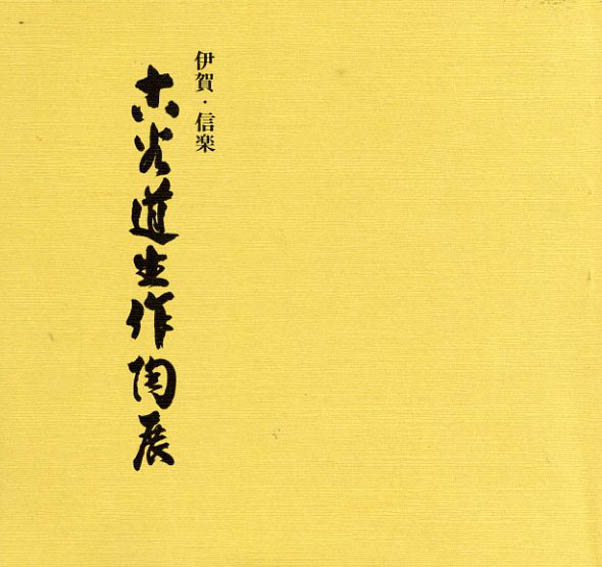 伊賀・信楽
古谷道生作陶展